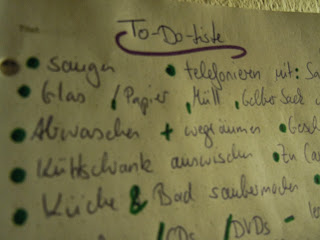 To-Do-Liste
• saugen • telefonieren mit: Sa
• Glas / Papier, Müll, Gelber Sack
• Abwaschen + wegräumen • Gesch
• Kühlschrank auswischen • Zu
• Küche & Bad saubermachen •
/CDs /DVDs -